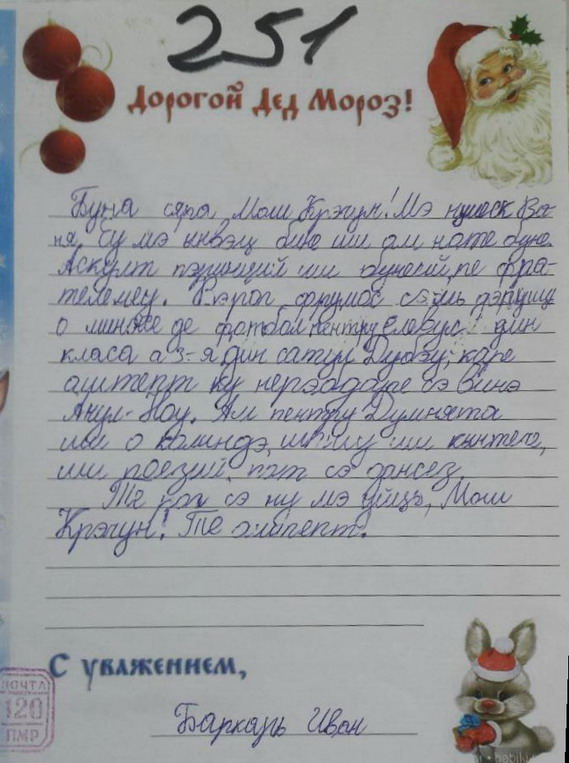 251
Дорогой Дед Мороз!
Буна сяра Мош Крэчун! Мэ нумеск Ва-
ня. Еу мэ ынвэц бине ши ам ноте буне.
Аскулт пэринций ши бунеий, пе фра-
телемеу. Те рог фрумос сэ-мь дэруешь
о минже де фотбал пентру елевул дин
класа а 3-я дин сатул Дубэу, каре
аштепт ку нерэбдаре сэ винэ
Анул-Ноу. Ам пентру Думнята
ши о колиндэ, ши кынтече,
ши поезий, пот сэ дансез.
Те рог сэ ну мэ уйць, Мош
Крэчун! Те аштепт.
С уважением,
Баркарь Иван
ПОЧТА
120
ПМР